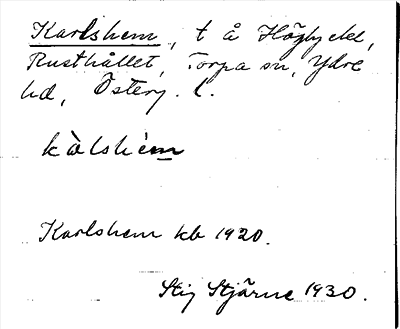 Karlshem, t å Höglycke,
Rusthållet, Torpa sn, Ydre
hd, Österg. l.
kàlshèm
Karlshem kb 1920.
Stig Stjärne 1930.